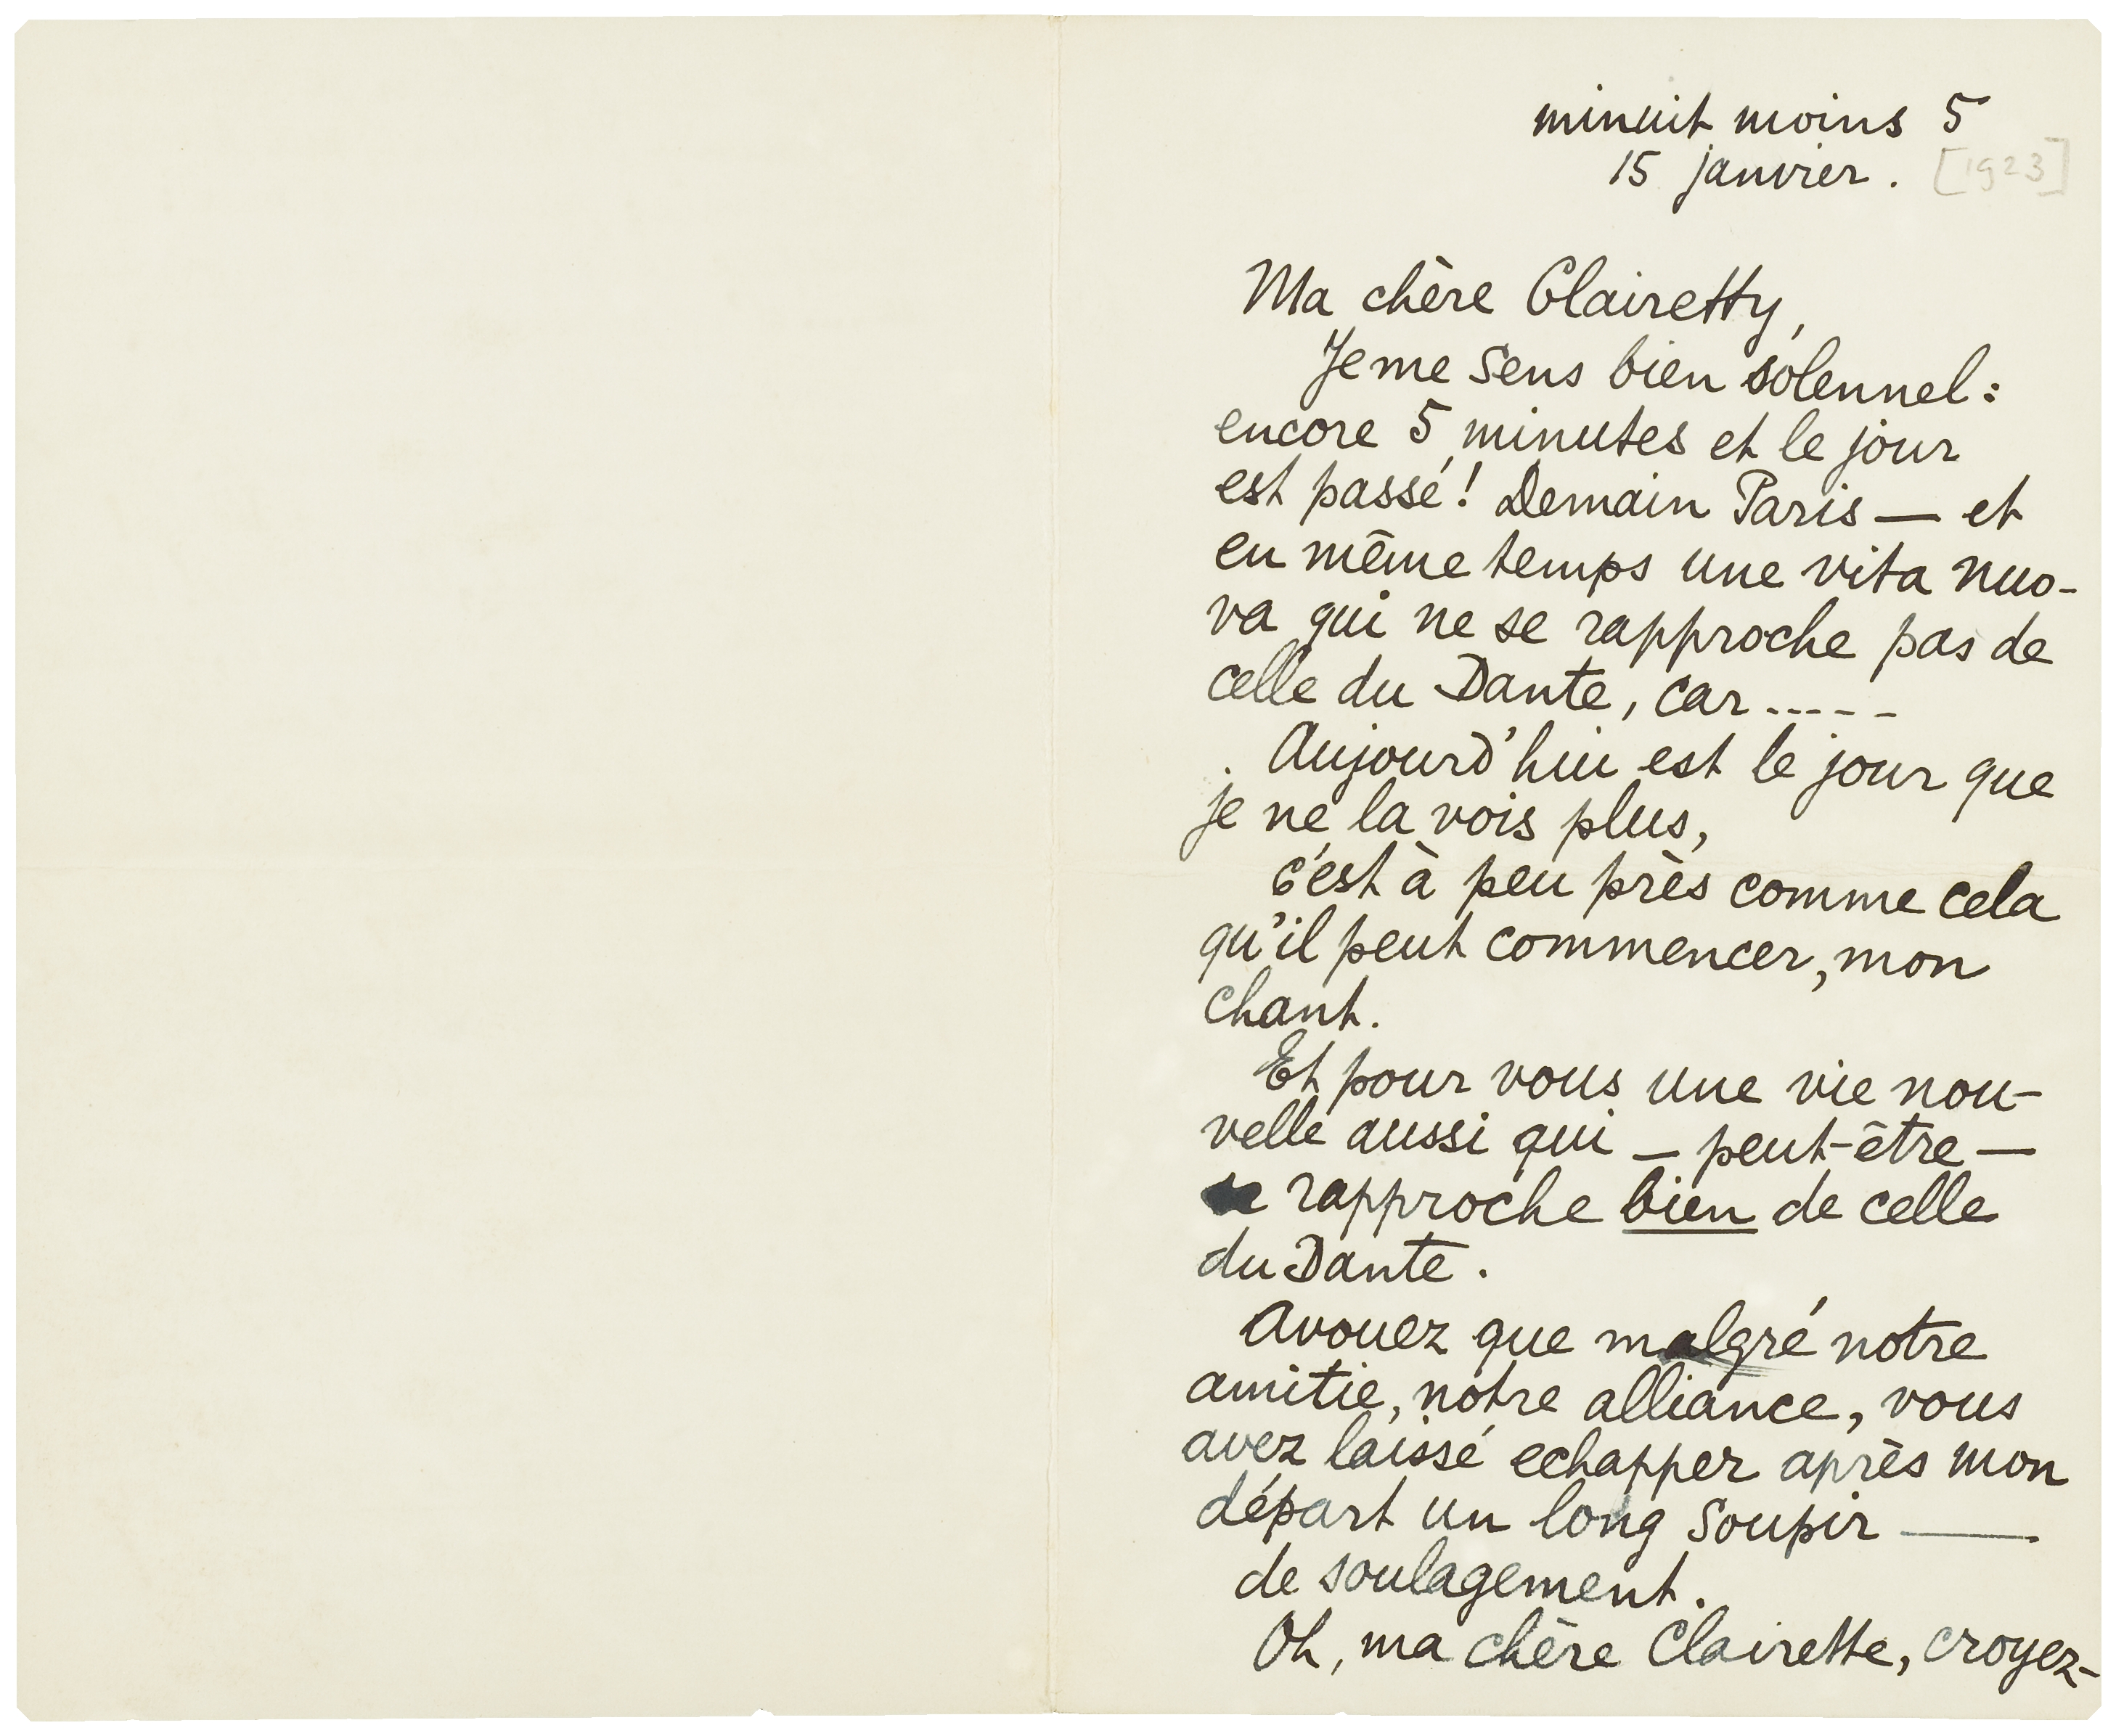 minuit moins 5
15 janvier. [1923]
Ma chère Clairetty,
Je me sens bien solennel:
encore 5 minutes et le jour
est passé! Demain Paris — et
en même temps une vita nuo-
va qui ne se rapproche pas de
celle du Dante, car.....
Aujourd'hui est le jour que
je ne la vois plus,
c'est à peu près comme cela
qu'il peut commencer, mon
chant.
Et pour vous une vie nou-
velle aussi qui — peut-être —
se rapproche bien de celle
du Dante.
Avouez que malgré notre
amitie, notre alliance, vous
avez laissé echapper après mon
départ un long soupir ——
de soulagement.
Oh, ma chère Clairette, croyez-